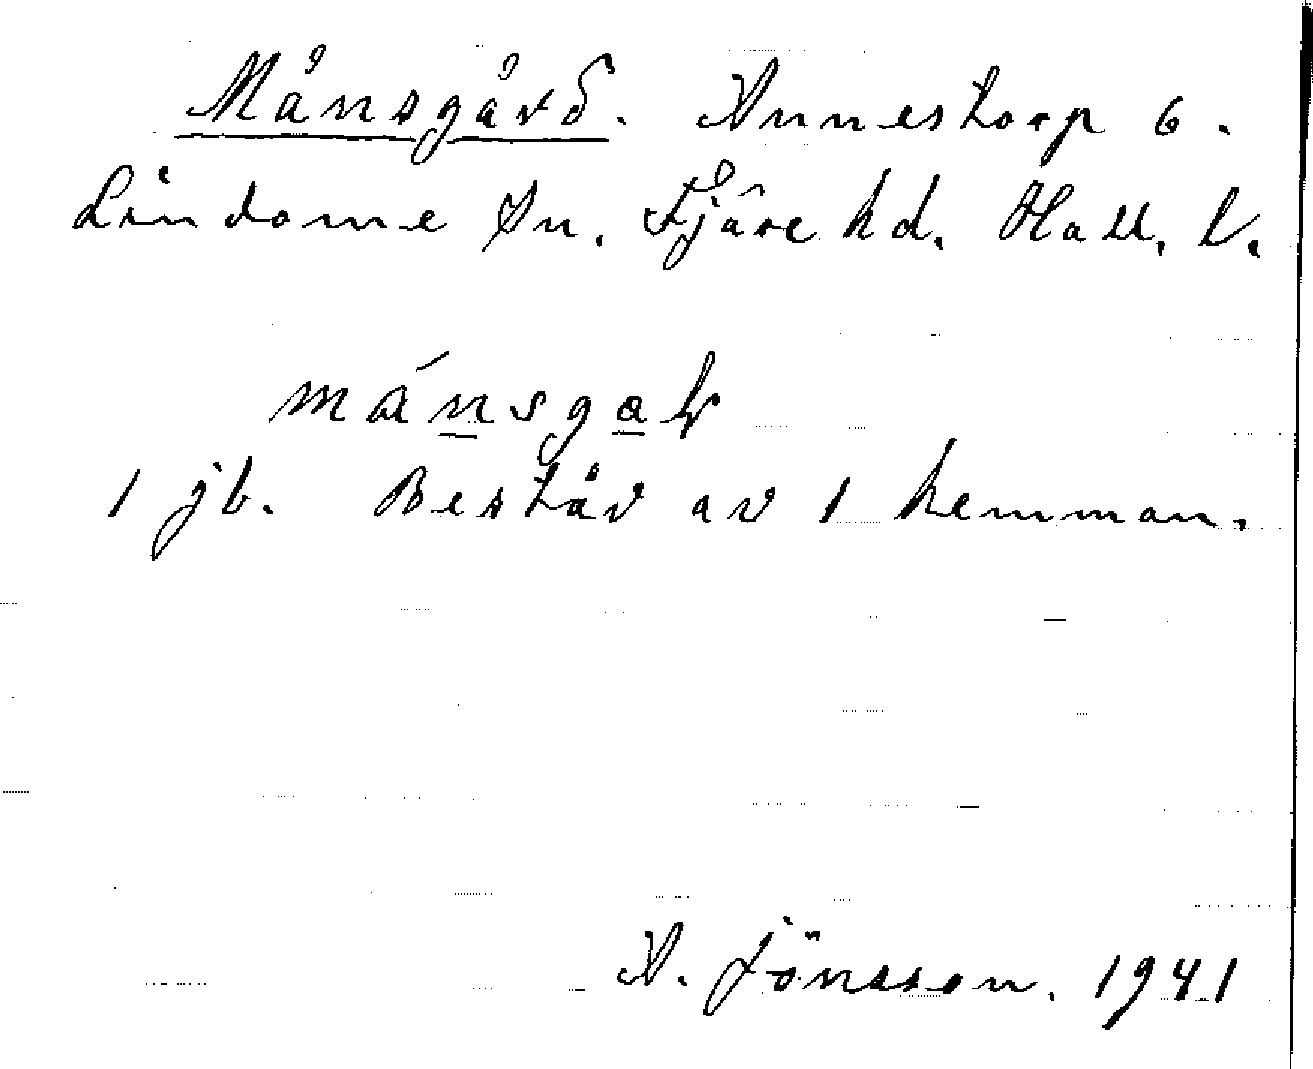 Månsgård. Annestorp 6.
Lindome Sn. Fjäre hd. Hall. l.
mánsgaḷ
1 jb. Består av 1 hemman.
A. Jönsson. 1941